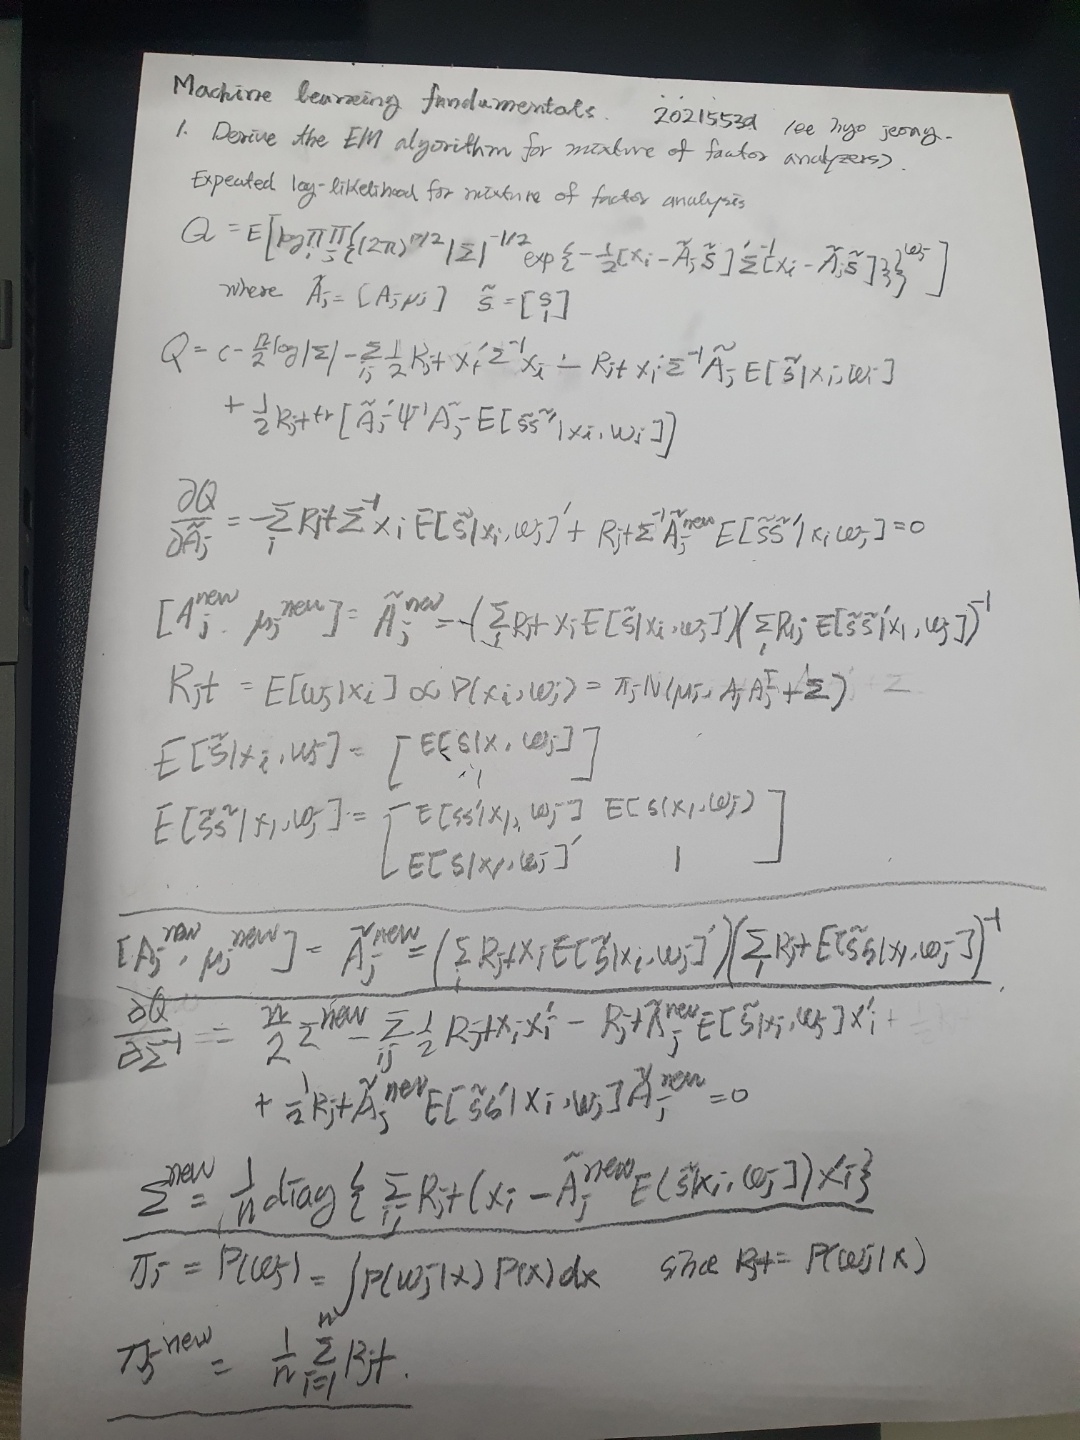 Machine learning fundamentals. 2021553 lee hyo jeong.
1. Derive the EM algorithm for mixture of factor analyzers).
Expected log-likelihood for mixture of factor analysis
Q = E[log Π_i Π_j {(2π)^{p/2} |Σ|^{-1/2} exp{-1/2 [x_i - Ã_j s̃]' Σ^{-1} [x_i - Ã_j s̃]}}^{ω_j}]
where Ã_j = [A_j μ_j] s̃ = [s 1]
Q = c - n/2 log|Σ| - Σ_{ij} 1/2 R_jt x_i' Σ^{-1} x_i - R_jt x_i' Σ^{-1} Ã_j E[s̃|x_i, ω_j]
+ 1/2 R_jt tr[Ã_j' Ψ^{-1} Ã_j E[s̃s̃'|x_i, ω_j]]
∂Q/∂Ã_j = -Σ_i R_jt Σ^{-1} x_i E[s̃|x_i, ω_j]' + R_jt Σ^{-1} Ã_j^{new} E[s̃s̃'|x_i ω_j] = 0
[A_j^{new}, μ_j^{new}] = Ã_j^{new} = -(Σ_i R_jt x_i E[s̃|x_i, ω_j]')(Σ_i R_ij E[s̃s̃'|x_i, ω_j])^{-1}
R_jt = E[ω_j|x_i] ∝ P(x_i, ω_j) = π_j N(μ_j, A_j A_j^T + Σ)
E[s̃|x_i, ω_j] = [E[s|x, ω_j] 1]
E[s̃s̃|x_i, ω_j] = [E[ss'|x_i, ω_j] E[s|x_i, ω_j)
E[s|x_i, ω_j]' 1]
[A_j^{new}, μ_j^{new}] = Ã_j^{new} = (Σ_i R_jt x_i E[s̃|x_i, ω_j]')(Σ_i R_jt E[s̃s̃|x_i, ω_j])^{-1}
∂Q/∂Σ^{-1} = n/2 Σ^{new} - Σ_{ij} 1/2 R_jt x_i x_i' - R_jt Ã_j^{new} E[s̃|x_i, ω_j] x_i'
+ 1/2 R_jt Ã_j^{new} E[s̃s̃'|x_i, ω_j] Ã_j^{new} = 0
Σ^{new} = 1/n diag{Σ_{ij} R_jt (x_i - Ã_j^{new} E(s̃|x_i, ω_j]) x_i'}
π_j = P(ω_j) = ∫P(ω_j|x) P(x) dx since R_jt = P(ω_j|x)
π_j^{new} = 1/n Σ_{i=1}^{n} R_jt.